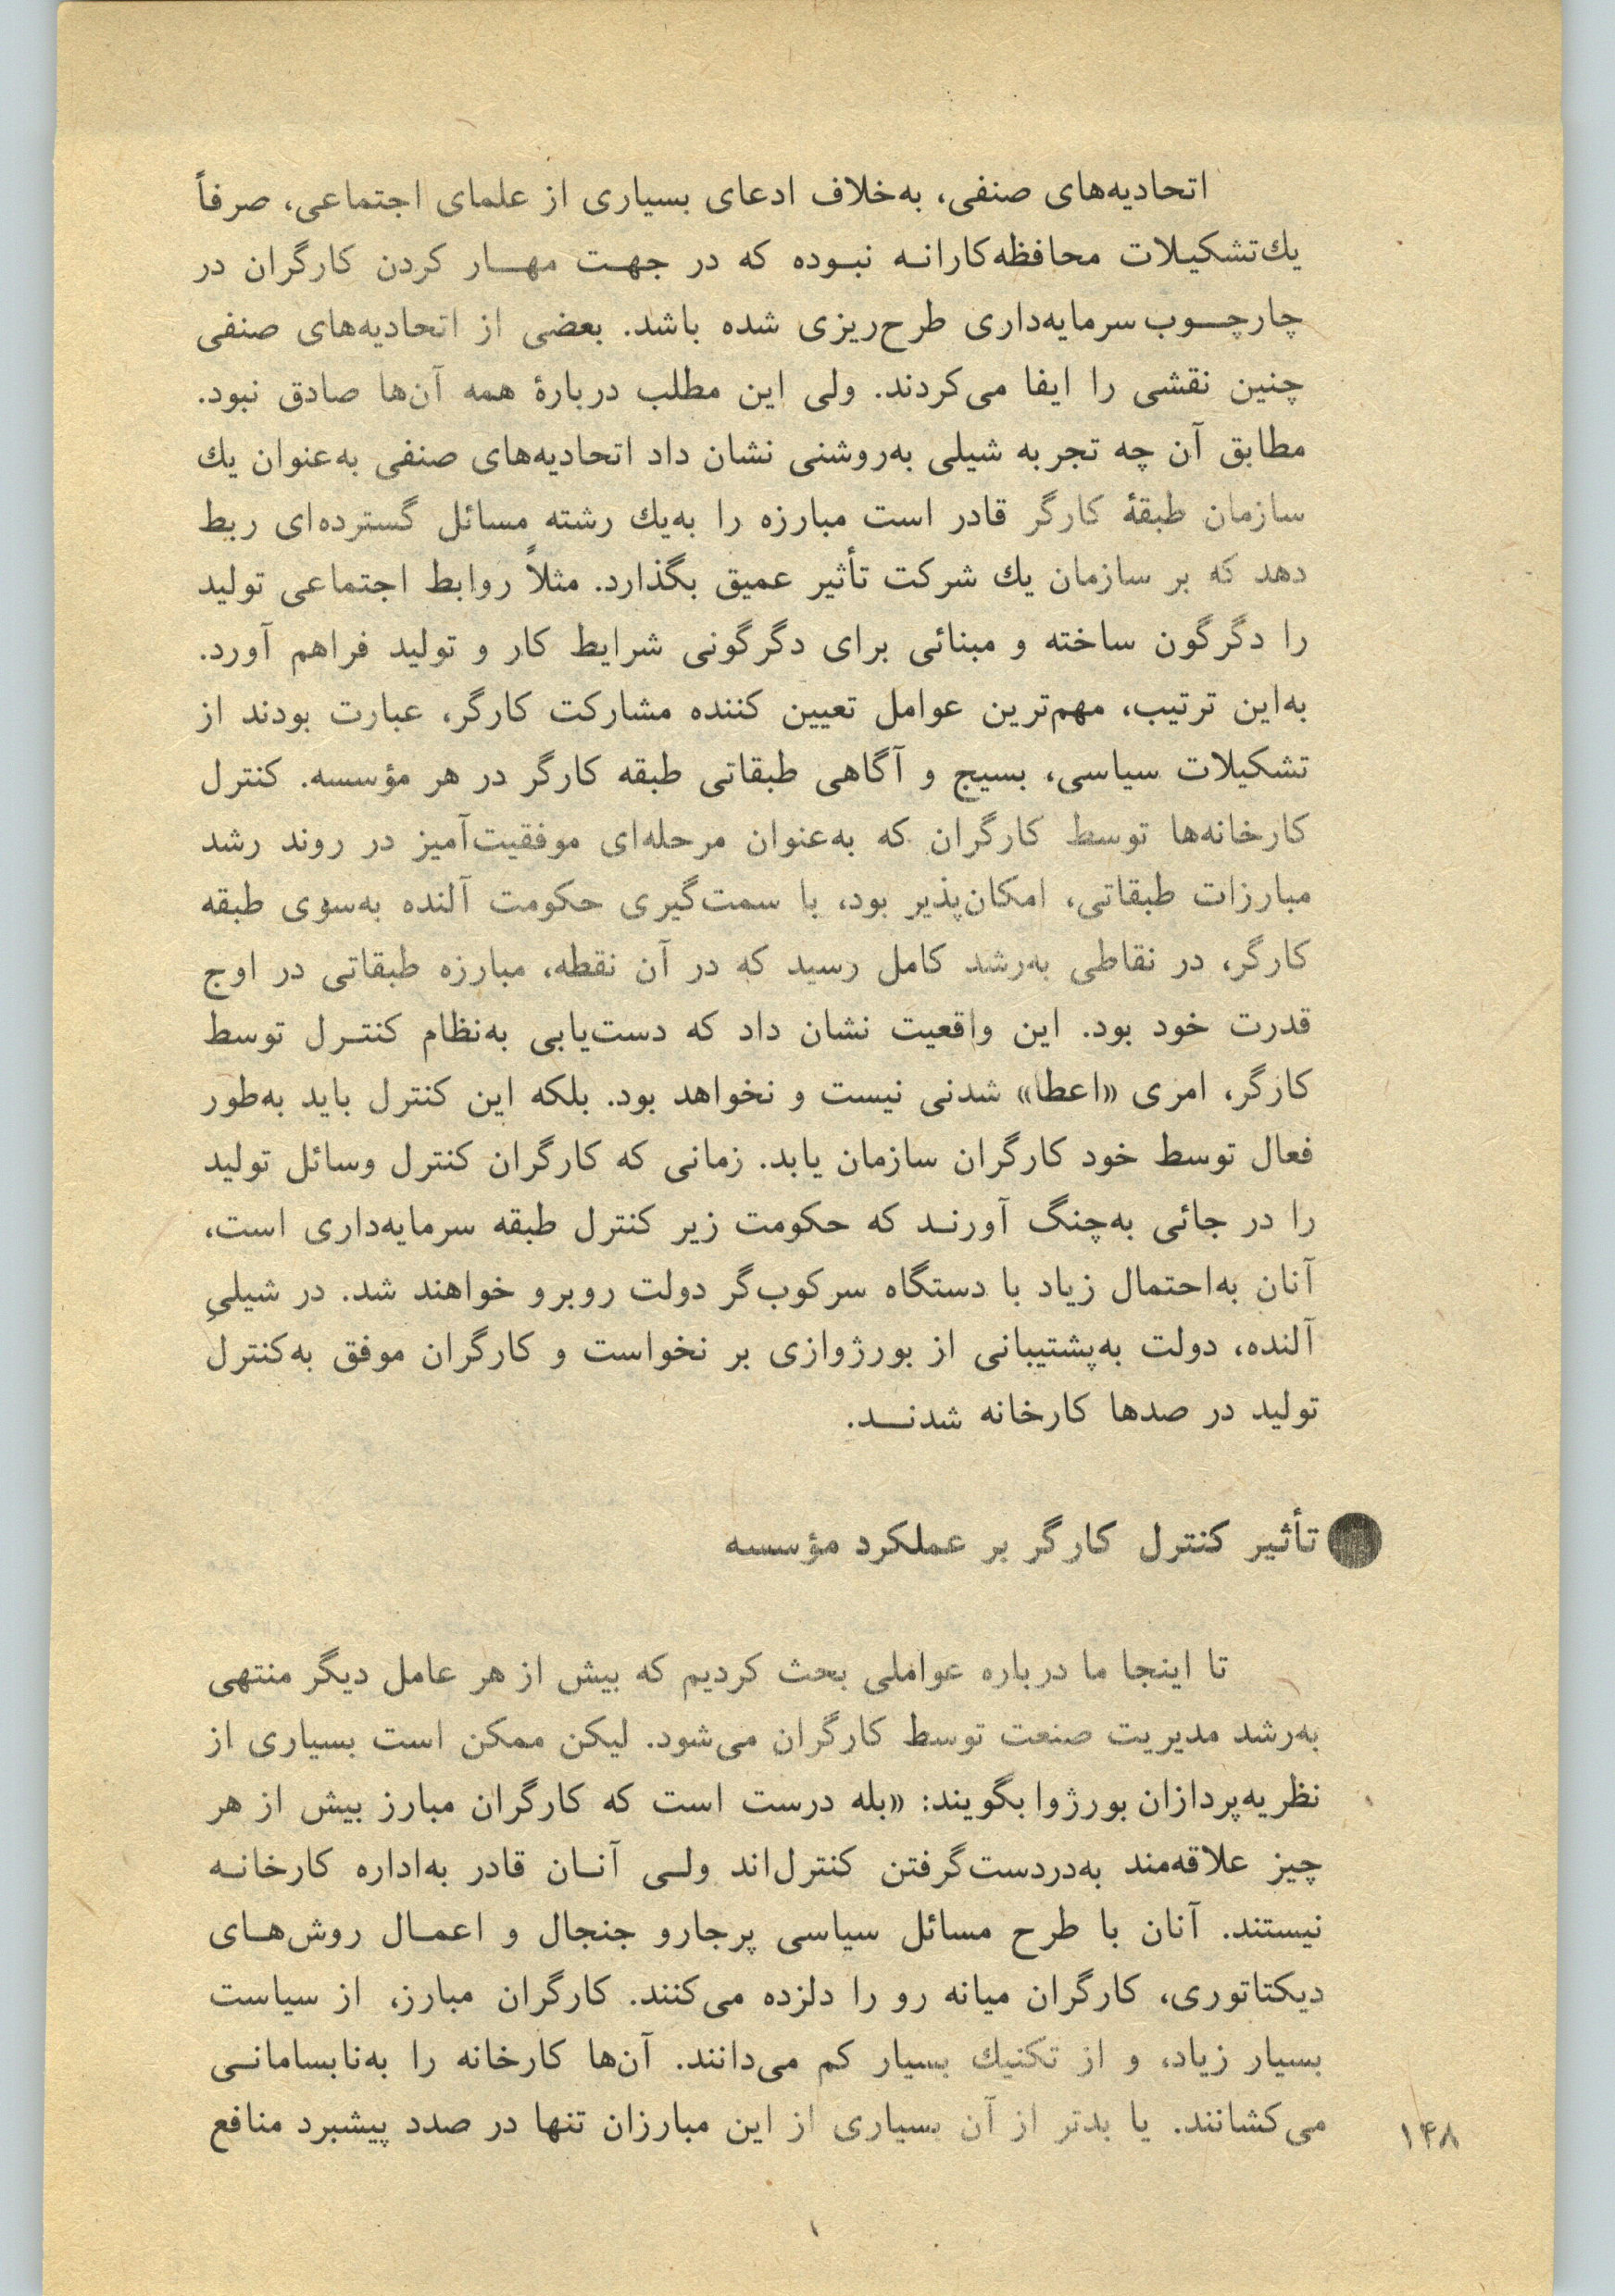 اتحادیه‌های صنفی، به‌خلاف ادعای بسیاری از علمای اجتماعی، صرفاً
یك‌تشکیلات محافظه‌کارانه نبوده که در جهت مهار کردن کارگران در
چارچوب سرمایه‌داری طرح‌ریزی شده باشد. بعضی از اتحادیه‌های صنفی
چنین نقشی را ایفا می‌کردند. ولی این مطلب دربارهٔ همه آن‌ها صادق نبود.
مطابق آن چه تجربه شیلی به‌روشنی نشان داد اتحادیه‌های صنفی به‌عنوان یك
سازمان طبقهٔ کارگر قادر است مبارزه را به‌یك رشته مسائل گسترده‌ای ربط
دهد که بر سازمان یك شرکت تأثیر عمیق بگذارد. مثلاً روابط اجتماعی تولید
را دگرگون ساخته و مبنائی برای دگرگونی شرایط کار و تولید فراهم آورد.
به‌این ترتیب، مهم‌ترین عوامل تعیین کننده مشارکت کارگر، عبارت بودند از
تشکیلات سیاسی، بسیج و آگاهی طبقاتی طبقه کارگر در هر مؤسسه. کنترل
کارخانه‌ها توسط کارگران که به‌عنوان مرحله‌ای موفقیت‌آمیز در روند رشد
مبارزات طبقاتی، امکان‌پذیر بود، با سمت‌گیری حکومت آلنده به‌سوی طبقه
کارگر، در نقاطی به‌رشد کامل رسید که در آن نقطه، مبارزه طبقاتی در اوج
قدرت خود بود. این واقعیت نشان داد که دست‌یابی به‌نظام کنترل توسط
کارگر، امری «اعطا» شدنی نیست و نخواهد بود. بلکه این کنترل باید به‌طور
فعال توسط خود کارگران سازمان یابد. زمانی که کارگران کنترل وسائل تولید
را در جائی به‌چنگ آورند که حکومت زیر کنترل طبقه سرمایه‌داری است،
آنان به‌احتمال زیاد با دستگاه سرکوب‌گر دولت روبرو خواهند شد. در شیلیِ
آلنده، دولت به‌پشتیبانی از بورژوازی بر نخواست و کارگران موفق به‌کنترل
تولید در صدها کارخانه شدند.
تأثیر کنترل کارگر بر عملکرد مؤسسه
تا اینجا ما درباره عواملی بحث کردیم که بیش از هر عامل دیگر منتهی
به‌رشد مدیریت صنعت توسط کارگران می‌شود. لیکن ممکن است بسیاری از
نظریه‌پردازان بورژوا بگویند: «بله درست است که کارگران مبارز بیش از هر
چیز علاقه‌مند به‌دردست‌گرفتن کنترل‌اند ولی آنان قادر به‌اداره کارخانه
نیستند. آنان با طرح مسائل سیاسی پرجارو جنجال و اعمال روش‌های
دیکتاتوری، کارگران میانه رو را دلزده می‌کنند. کارگران مبارز، از سیاست
بسیار زیاد، و از تکنیك بسیار کم می‌دانند. آن‌ها کارخانه را به‌نابسامانی
می‌کشانند. یا بدتر از آن بسیاری از این مبارزان تنها در صدد پیشبرد منافع
۱۴۸